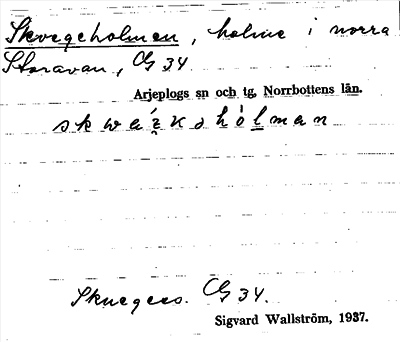 Skvegeholmen, holme i norra
Storavan, CG 34
Arjeplogs sn och tg, Norrbottens län.
CG 34.
Sigvard Wallström, 1937.